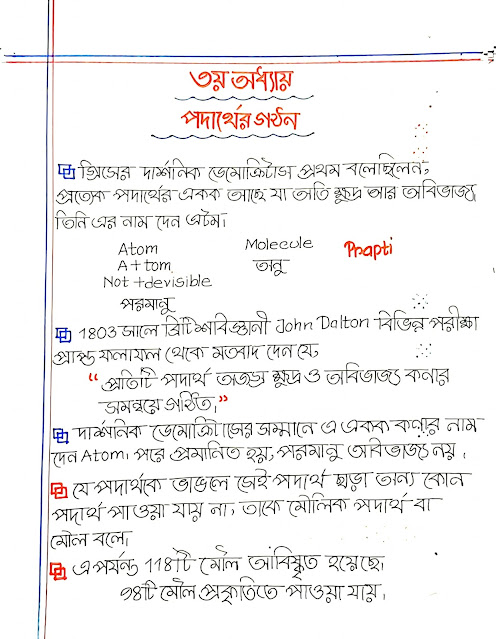 ৩য় অধ্যায়
পদার্থের গঠন
গ্রিসের দার্শনিক ডেমোক্রিটাস প্রথম বলেছিলেন,
প্রত্যেক পদার্থের একক আছে যা অতি ক্ষুদ্র আর অবিভাজ্য
তিনি এর নাম দেন এটম।
Atom Molecule Prapti
A + tom অনু
Not + devisible
পরমানু
1803 সালে ব্রিটিশ বিজ্ঞানী John Dalton বিভিন্ন পরীক্ষা
প্রাপ্ত ফলাফল থেকে মতবাদ দেন যে,
“ প্রতিটি পদার্থ অজস্র ক্ষুদ্র ও অবিভাজ্য কনার
সমন্বয়ে গঠিত।”
দার্শনিক ডেমোক্রিটাসের সম্মানে এ একক কণার নাম
দেন Atom। পরে প্রমানিত হয়, পরমানু অবিভাজ্য নয়।
যে পদার্থকে ভাঙলে সেই পদার্থ ছাড়া অন্য কোন
পদার্থ পাওয়া যায় না, তাকে মৌলিক পদার্থ বা
মৌল বলে।
এ পর্যন্ত 118টি মৌল আবিষ্কৃত হয়েছে।
98টি মৌল প্রকৃতিতে পাওয়া যায়।